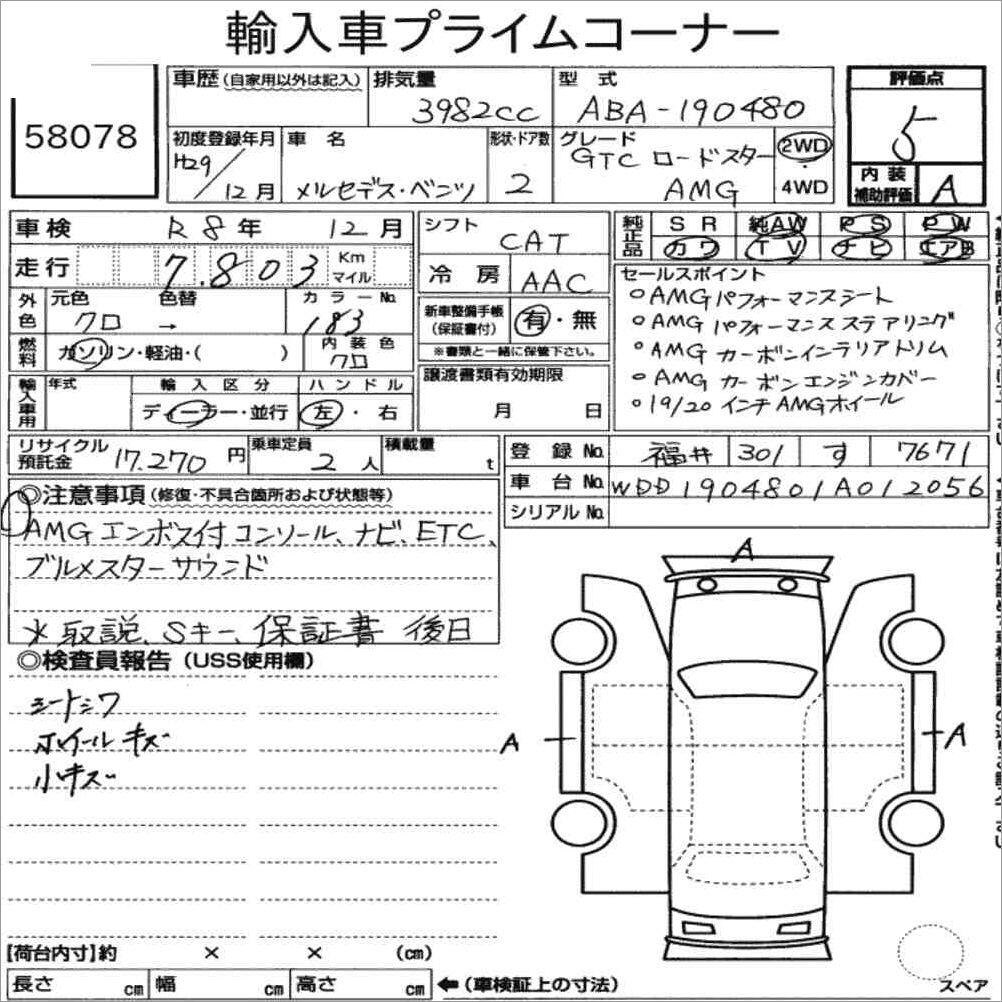 輸入車プライムコーナー
58078
車歴 (自家用以外は記入) 排気量 3982cc 型式 ABA-190480 評価点 5
初度登録年月 H29/12月 車名 メルセデス・ベンツ 形状・ドア数 2 グレード GTC ロードスター AMG 2WD・4WD 内装補助評価 A
車検 R8年 12月 シフト CAT 純正品 SR 純AW PS PW
走行 7.803 Km マイル 冷房 AAC カワ TV ナビ エアB
外色 元色 クロ 色替 → カラーNo. 183 新車整備手帳 (保証書付) 有・無
※書類と一緒に保管下さい。
燃料 ガソリン・軽油・( ) 内装色 クロ
輸入車用 年式 輸入区分 ディーラー・並行 ハンドル 左・右 譲渡書類有効期限 月 日
セールスポイント
○AMGパフォーマンスシート
○AMGパフォーマンスステアリング
○AMG カーボンインテリアトリム
○AMG カーボンエンジンカバー
○19/20 インチAMGホイール
リサイクル預託金 17.270円 乗車定員 2人 積載量 t
登録No. 福井 301 す 7671
車台No. WDD1904801A012056
シリアルNo.
◎注意事項 (修復・不具合箇所および状態等)
AMGエンボス付コンソール、ナビ、ETC、
ブルメスターサウンド
※取説、Sキー、保証書 後日
◎検査員報告 (USS使用欄)
シートシワ
ホイールキズ
小キズ
A
A
A
【荷台内寸】約 × × (cm)
長さ cm 幅 cm 高さ cm ←(車検証上の寸法)
スペア